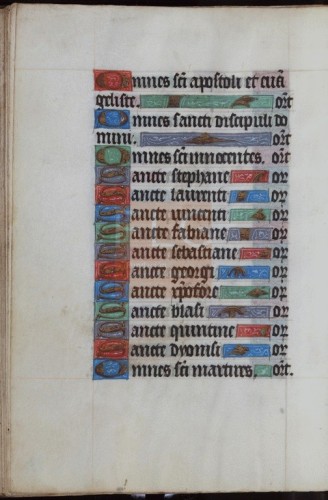 Omnes sci apostoli et euã
geliste. ort
Omnes sancti discipuli do
mini. ort
Omnes sci innocentes. ort
Sancte stephane or
Sancte laurenti or
Sancte vincenti or
Sancte fabiane or
Sancte sebastiane or
Sancte georgi or
Sancte xpofore or
Sancte blasi or
Sancte quintine or
Sancte dyonisi or
Omnes sci martires. ort.